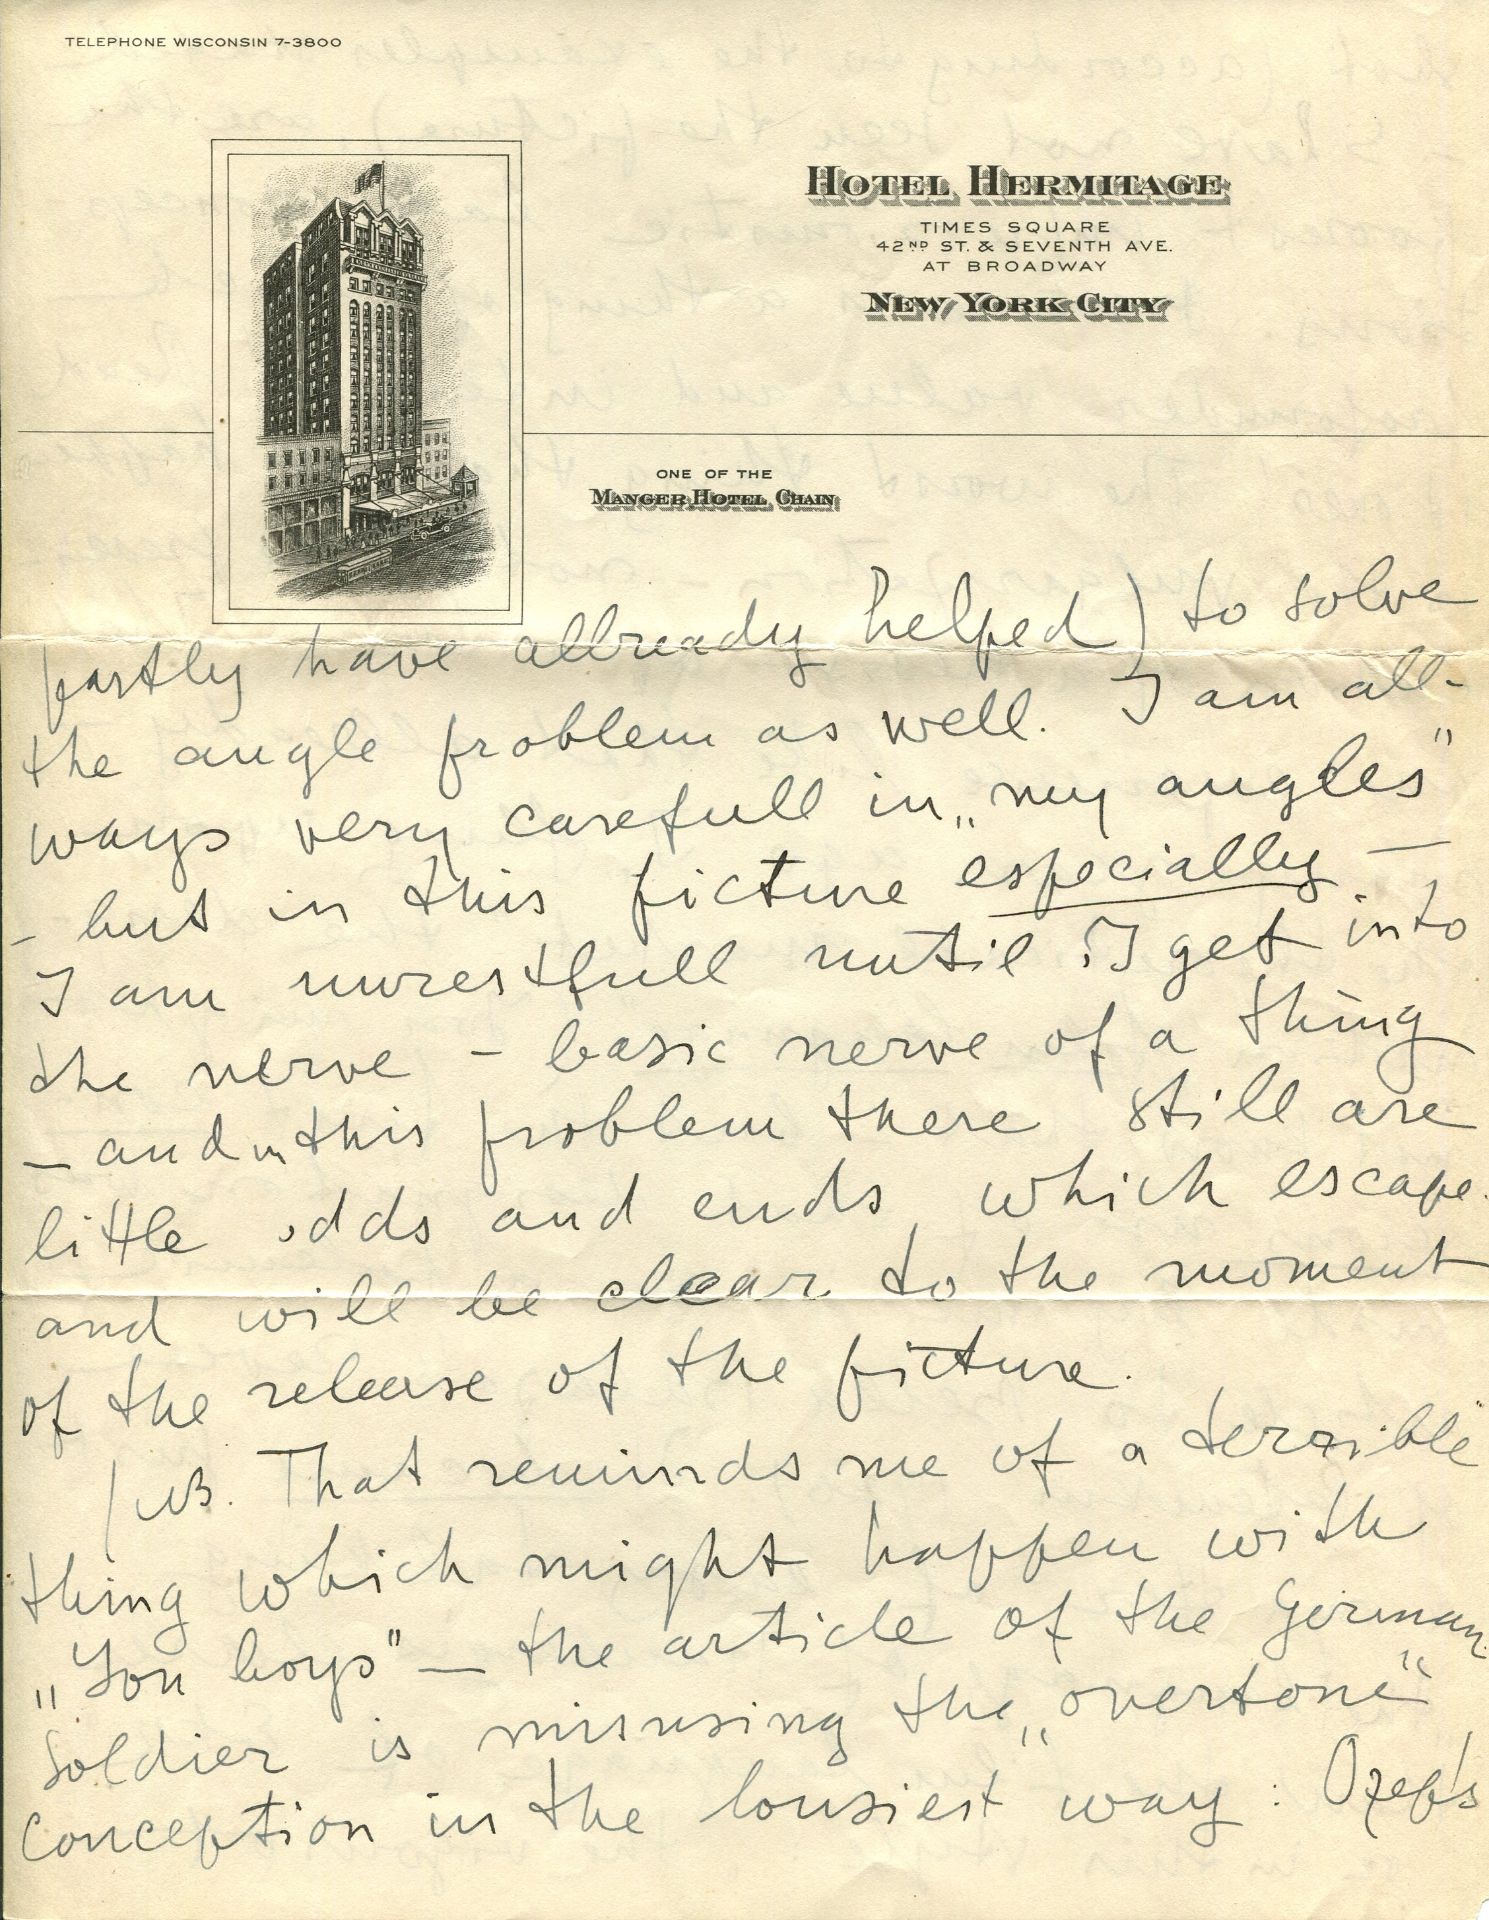 TELEPHONE WISCONSIN 7-3800
HOTEL HERMITAGE
TIMES SQUARE
42ND ST. & SEVENTH AVE.
AT BROADWAY
NEW YORK CITY
ONE OF THE
MANGER HOTEL CHAIN
partly have allready helped) to solve
the angle problem as well. I am all-
ways very carefull in „my angles"
– but in this picture especially –
I am unrestfull until I get into
the nerve – basic nerve of a thing
– and in this problem there still are
little odds and ends which escape.
and will be clear to the moment
of the release of the picture.
/NB. That reminds me of a terrible
thing which might happen with
„You boys" – the article of the German
Soldier is misusing the „overtone"
conception in the lousiest way: Ozep's